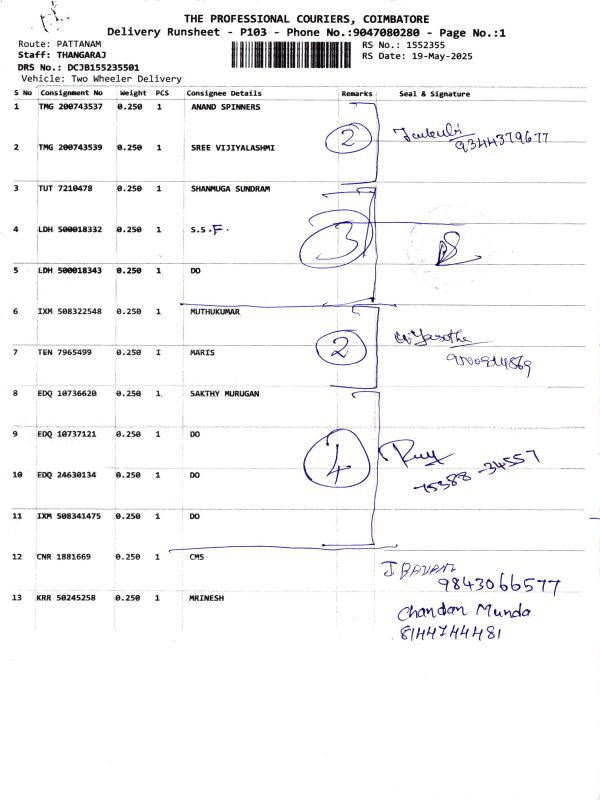 THE PROFESSIONAL COURIERS, COIMBATORE
Delivery Runsheet - P103 - Phone No.:9047080280 - Page No.:1
Route: PATTANAM RS No.: 1552355
Staff: THANGARAJ RS Date: 19-May-2025
DRS No.: DCJB155235501
Vehicle: Two Wheeler Delivery
S No Consignment No Weight PCS Consignee Details Remarks Seal & Signature
1 TMG 200743537 0.250 1 ANAND SPINNERS
2 9344379677
2 TMG 200743539 0.250 1 SREE VIJIYALASHMI
3 TUT 7210478 0.250 1 SHANMUGA SUNDRAM
4 LDH 500018332 0.250 1 S.S.F. 3
5 LDH 500018343 0.250 1 DO
6 IXM 508322548 0.250 1 MUTHUKUMAR
7 TEN 7965499 0.250 1 MARIS 2
8 EDQ 10736620 0.250 1 SAKTHY MURUGAN
9 EDQ 10737121 0.250 1 DO
4 75388-34557
10 EDQ 24630134 0.250 1 DO
11 IXM 508341475 0.250 1 DO
12 CNR 1881669 0.250 1 CMS
9843066577
13 KRR 50245258 0.250 1 MRINESH Chandan Munda
8144744481